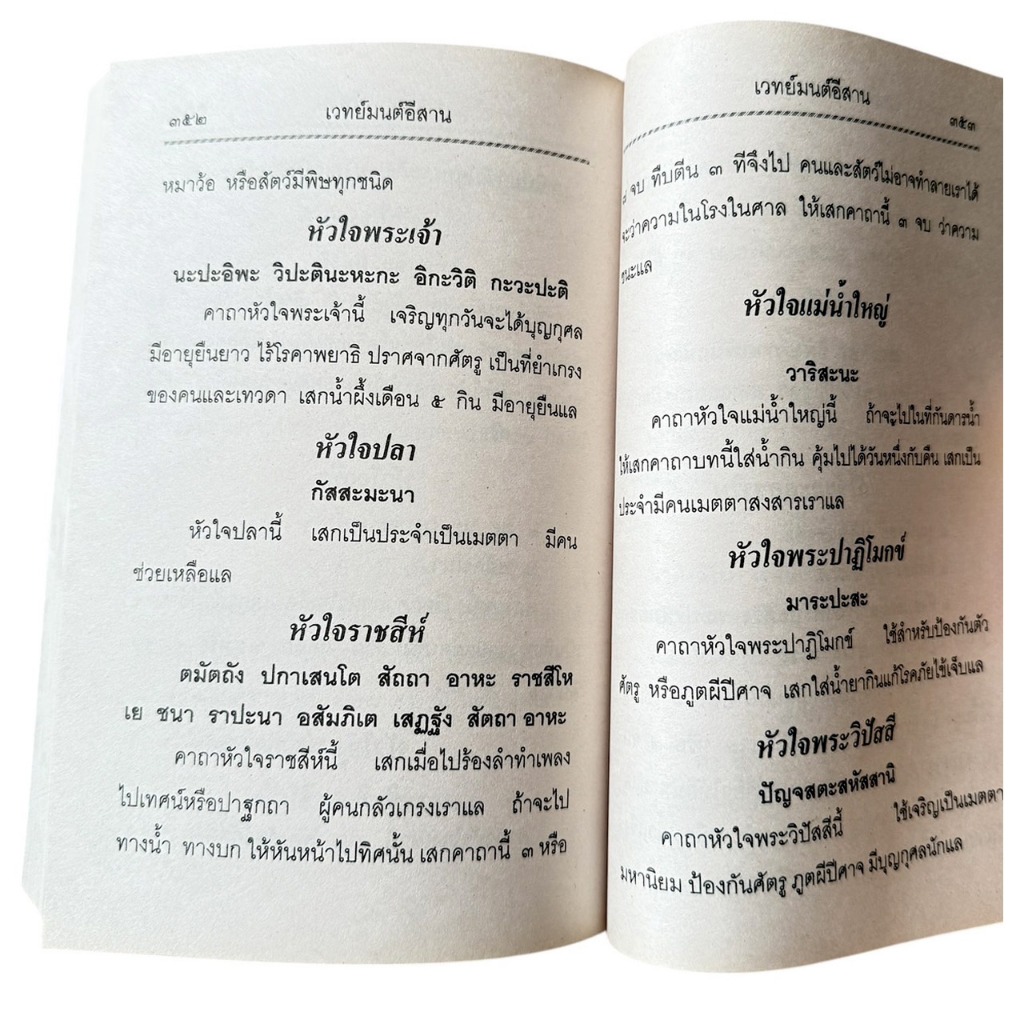 ๓๕๒ เวทย์มนต์อีสาน
หมาว้อ หรือสัตว์มีพิษทุกชนิด
หัวใจพระเจ้า
นะปะอิพะ วิปะตินะหะกะ อิกะวิติ กะวะปะติ
คาถาหัวใจพระเจ้านี้ เจริญทุกวันจะได้บุญกุศล
มีอายุยืนยาว ไร้โรคาพยาธิ ปราศจากศัตรู เป็นที่ยำเกรง
ของคนและเทวดา เสกน้ำผึ้งเดือน ๕ กิน มีอายุยืนแล
หัวใจปลา
กัสสะมะนา
หัวใจปลานี้ เสกเป็นประจำเป็นเมตตา มีคน
ช่วยเหลือแล
หัวใจราชสีห์
ตมัตถัง ปกาเสนโต สัถถา อาหะ ราชสีโห
เย ชนา ราปะนา อสัมภิเต เสฏฐัง สัตถา อาหะ
คาถาหัวใจราชสีห์นี้ เสกเมื่อไปร้องลำทำเพลง
ไปเทศน์หรือปาฐกถา ผู้คนกลัวเกรงเราแล ถ้าจะไป
ทางน้ำ ทางบก ให้หันหน้าไปทิศนั้น เสกคาถานี้ ๓ หรือ
เวทย์มนต์อีสาน ๓๕๓
จบ ทืบตีน ๓ ทีจึงไป คนและสัตว์ไม่อาจทำลายเราได้
จะว่าความในโรงในศาล ให้เสกคาถานี้ ๓ จบ ว่าความ
ชนะแล
หัวใจแม่น้ำใหญ่
วาริสะนะ
คาถาหัวใจแม่น้ำใหญ่นี้ ถ้าจะไปในที่กันดารน้ำ
ให้เสกคาถาบทนี้ใส่น้ำกิน คุ้มไปได้วันหนึ่งกับคืน เสกเป็น
ประจำมีคนเมตตาสงสารเราแล
หัวใจพระปาฏิโมกข์
มาระปะสะ
คาถาหัวใจพระปาฏิโมกข์ ใช้สำหรับป้องกันตัว
ศัตรู หรือภูตผีปีศาจ เสกใส่น้ำยากินแก้โรคภัยไข้เจ็บแล
หัวใจพระวิปัสสี
ปัญจสตะสหัสสานิ
คาถาหัวใจพระวิปัสสีนี้ ใช้เจริญเป็นเมตตา
มหานิยม ป้องกันศัตรู ภูตผีปีศาจ มีบุญกุศลนักแล